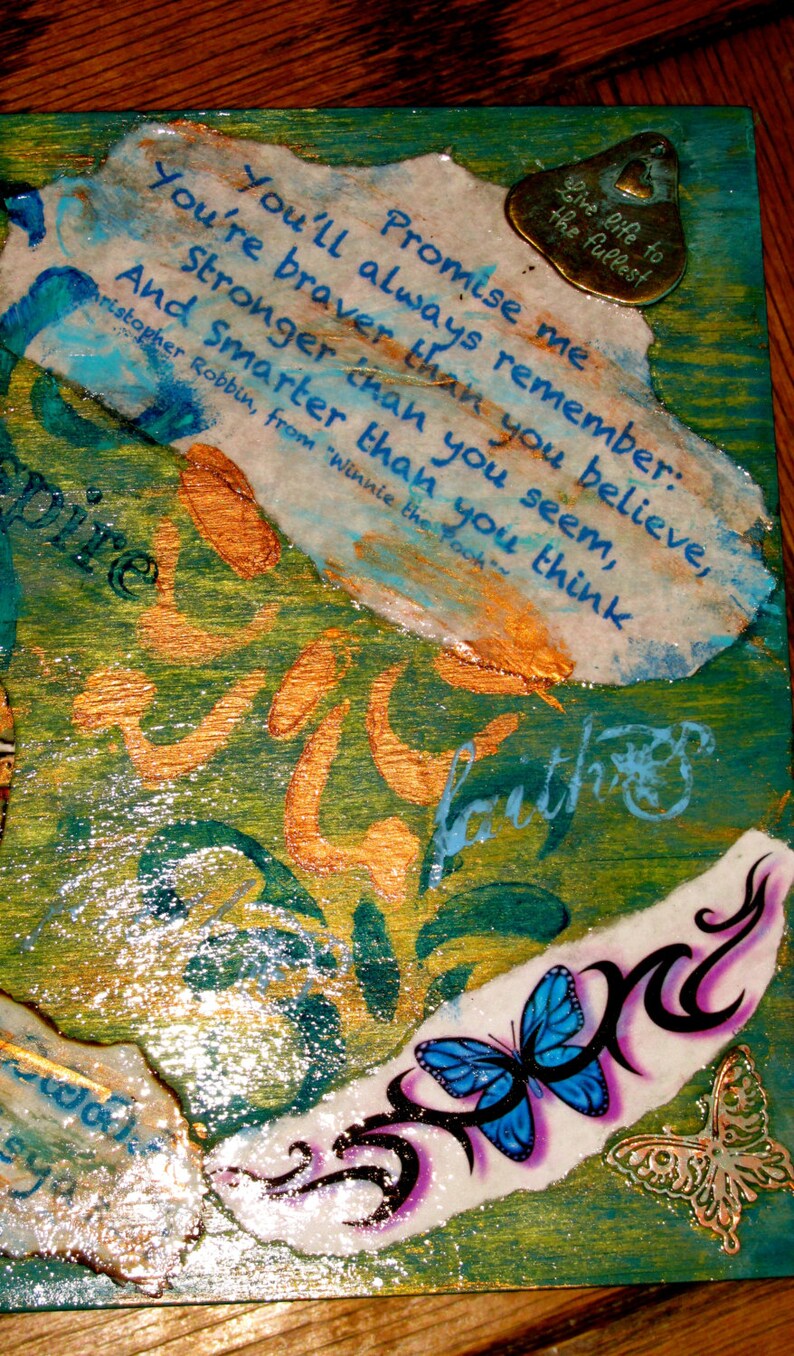 Promise me
You'll always remember:
You're braver than you believe,
Stronger than you seem,
And Smarter than you think
hristopher Robbin, from "Winnie the Pooh"~
Live life to
the fullest
spire
faith